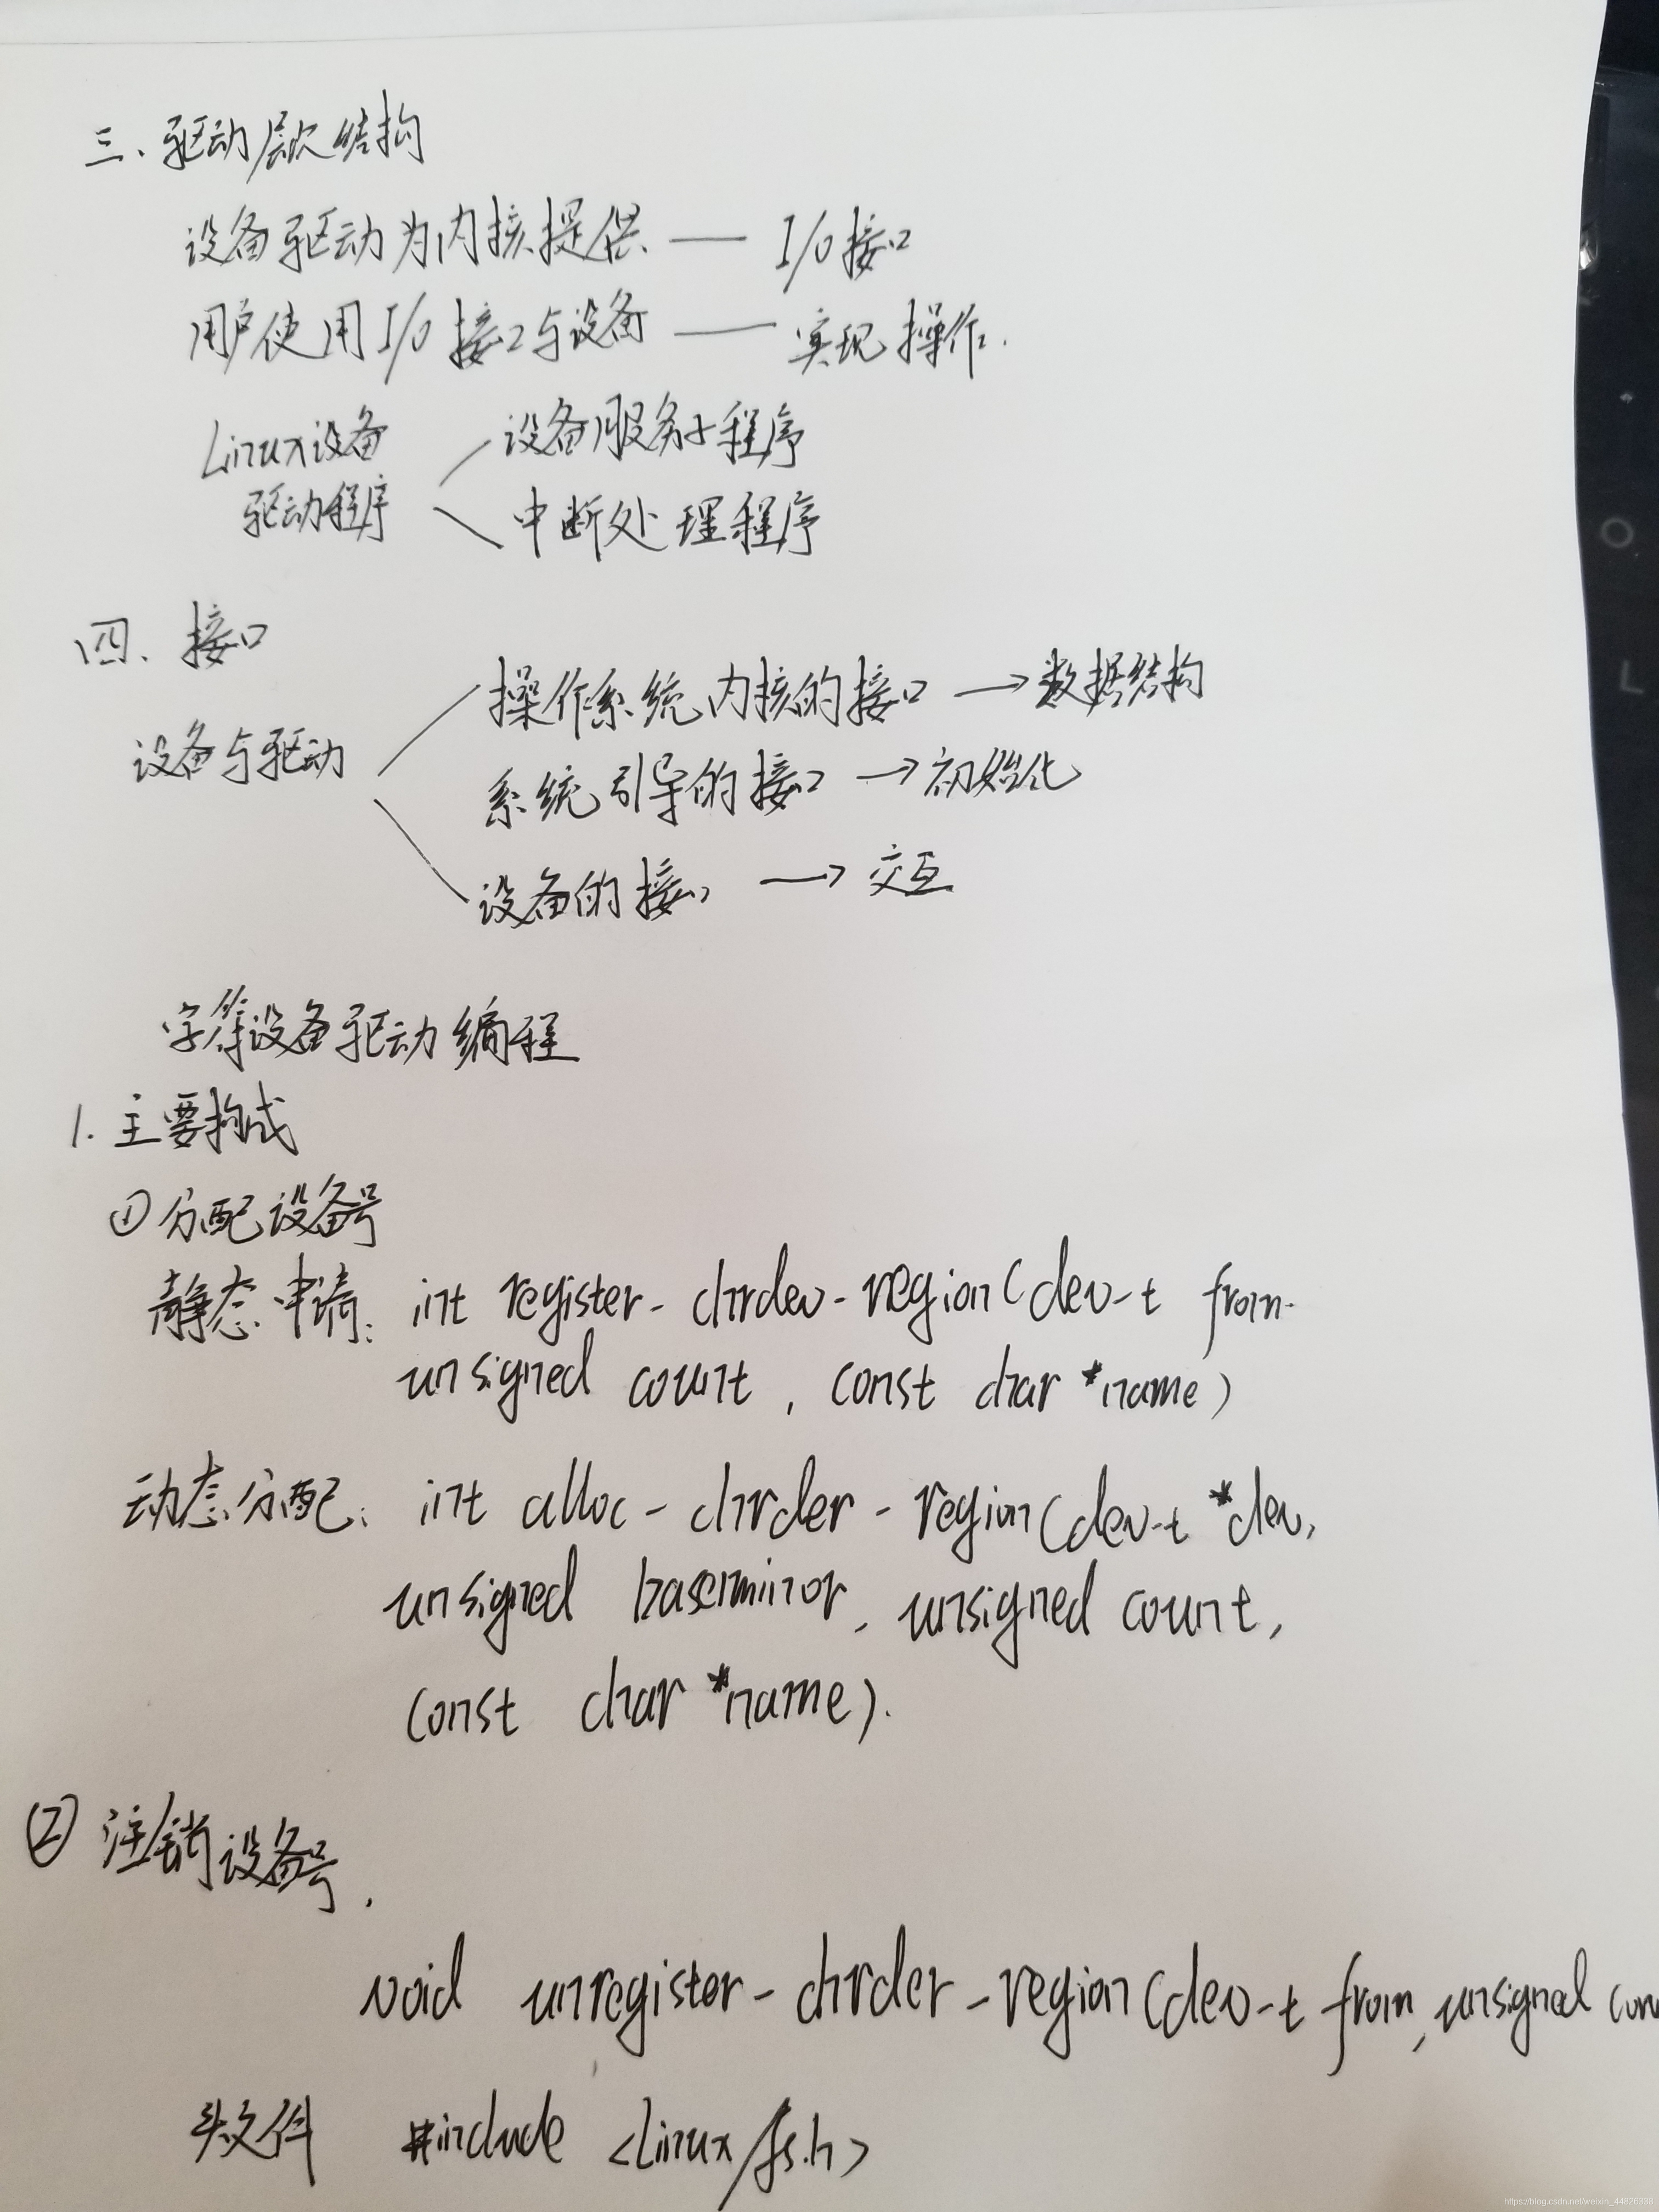 三、驱动层次结构
设备驱动为内核提供 —— I/O接口
用户使用I/O接口与设备 —— 实现操作.
Linux设备
驱动程序
设备服务子程序
中断处理程序
四、接口
设备与驱动
操作系统内核的接口 → 数据结构
系统引导的接口 → 初始化
设备的接口 → 交互
字符设备驱动编程
1. 主要构成
① 分配设备号
静态申请: int register-chrdev-region(dev-t from.
unsigned count, const char *name)
动态分配: int alloc-chrder-region(dev-t *dev,
unsigned baseminor, unsigned count,
const char *name).
② 注销设备号.
void unregister-chrder-region(dev-t from, unsigned
头文件 #include <Linux/fs.h>
https://blog.csdn.net/weixin_44826336